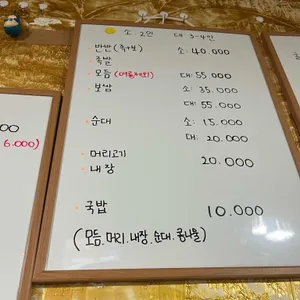 소: 2인 대: 3-4인
반반(족+보) 소: 40.000
족발
모듬 대: 55.000
보쌈 소: 35.000
대: 55.000
순대 소: 15.000
대: 20.000
머리고기 20.000
내장
국밥 10.000
(모듬.머리.내장.순대.콩나물)
00
6.000)